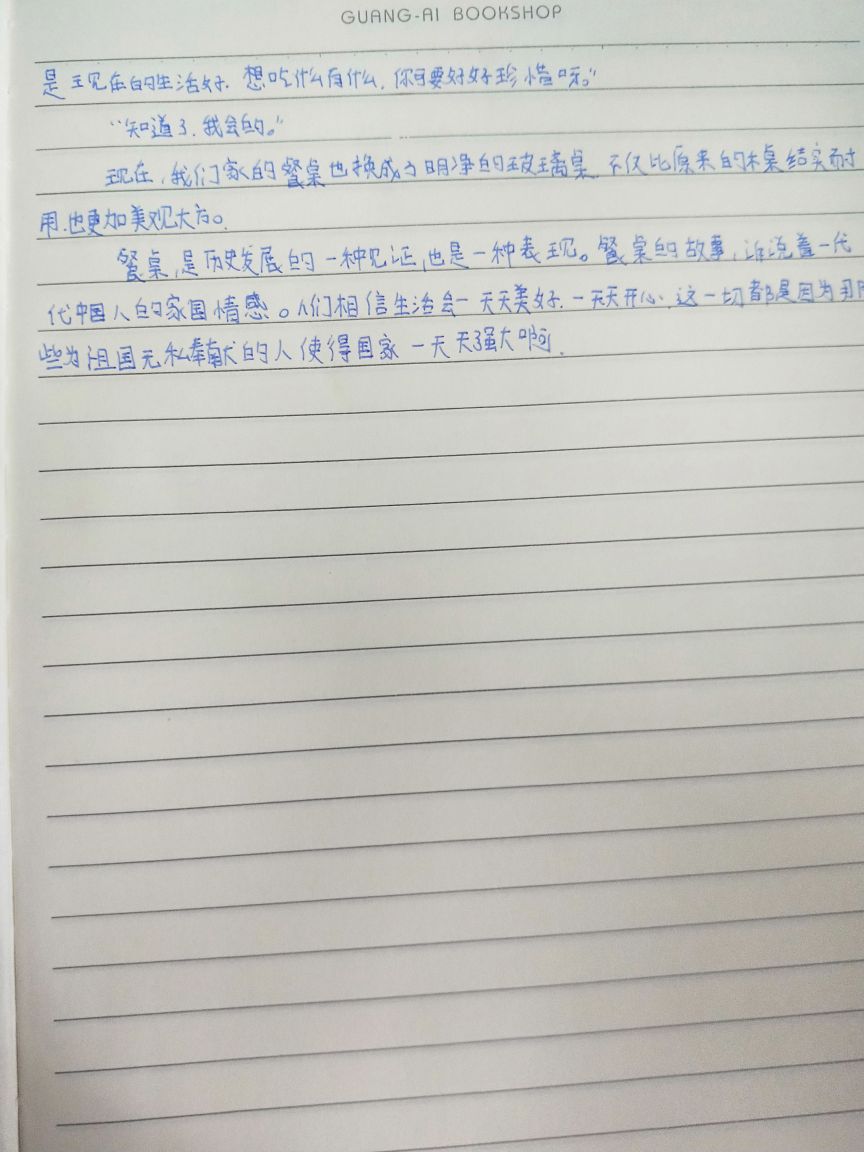 GUANG-AI BOOKSHOP
是现在的生活好.想吃什么有什么,你可要好好珍惜呀。”
“知道了,我会的。”
现在,我们家的餐桌也换成了明净的玻璃桌,不仅比原来的木桌结实耐
用,也更加美观大方。
餐桌,是历史发展的一种见证,也是一种表现。餐桌的故事,诉说着一代
代中国人的家国情感。人们相信生活会一天天美好.一天天开心.这一切都是因为那
些为祖国无私奉献的人使得国家一天天强大啊.